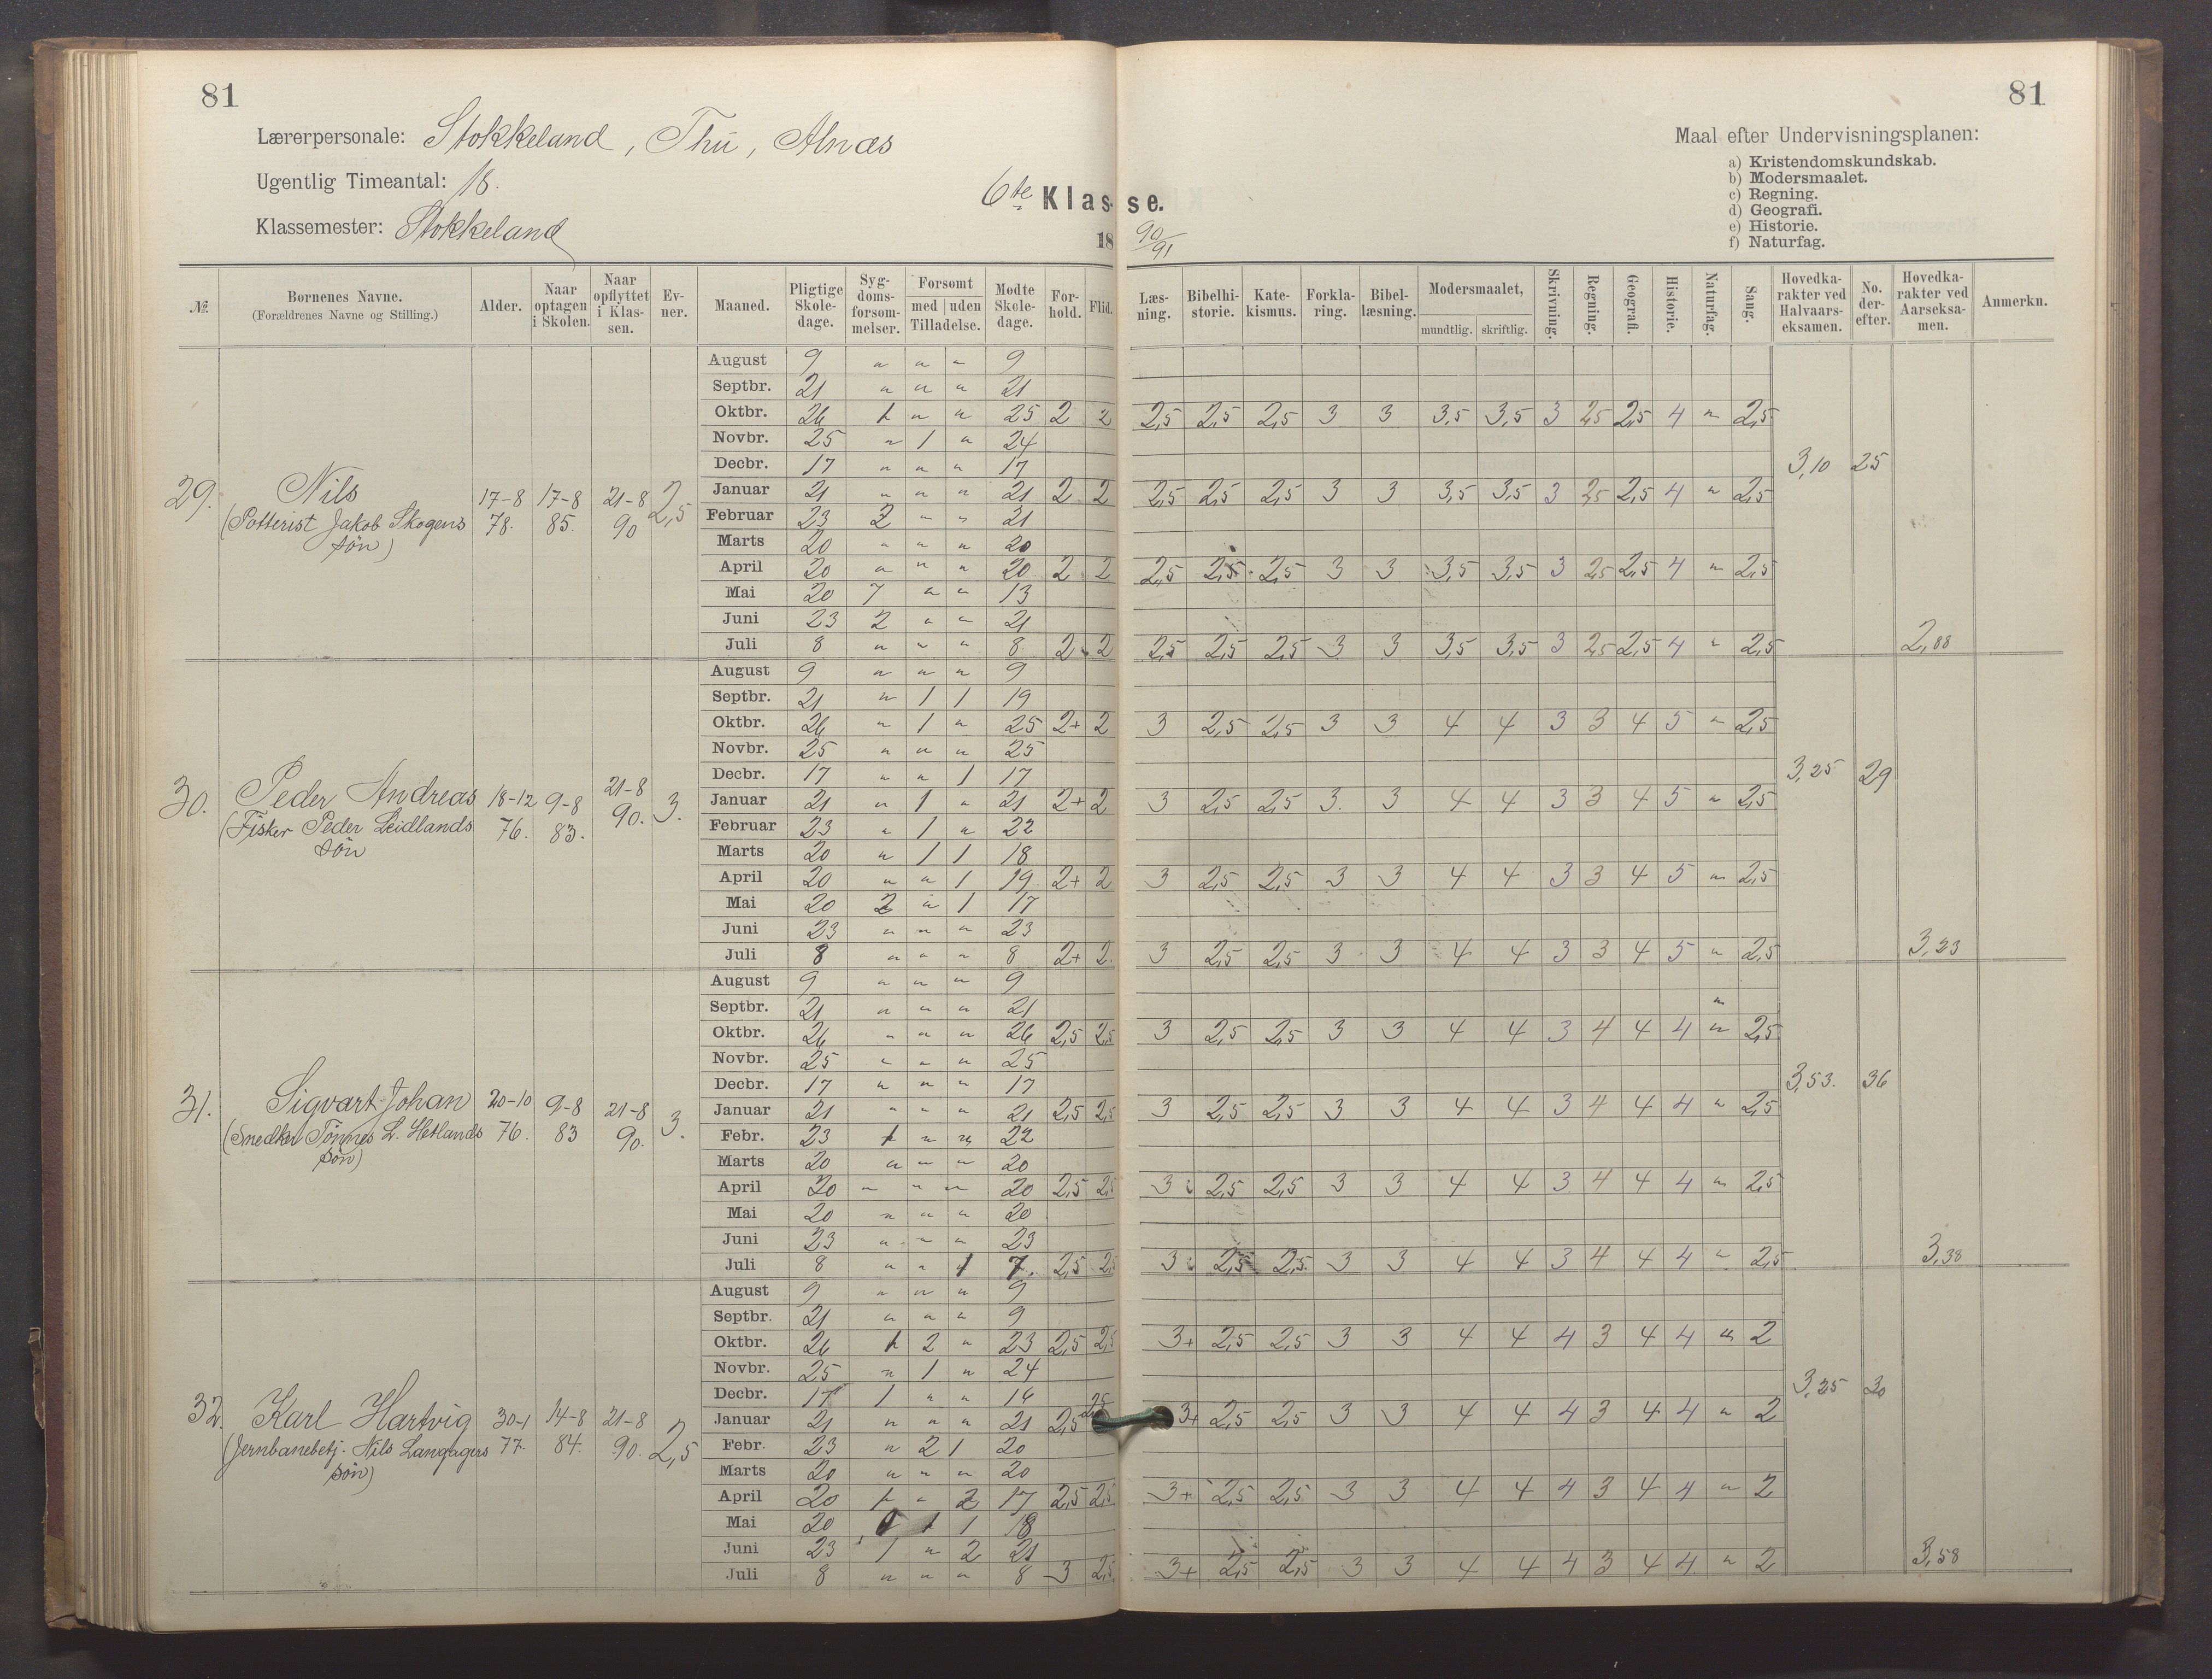 81
81
Lærerpersonale: Stokkeland, Thu, Alnæs
Ugentlig Timeantal: 18.
Klassemester: Stokkeland
6te Klasse.
18 90/91
Maal efter Undervisningsplanen:
a) Kristendomskundskab.
b) Modersmaalet.
c) Regning.
d) Geografi.
e) Historie.
f) Naturfag.
№ | Børnenes Navne. (Forældrenes Navne og Stilling.) | Alder. | Naar optagen i Skolen. | Naar opflyttet i Klassen. | Evner. | Maaned. | Pligtige Skoledage. | Sygdomsforsømmelser. | Forsømt med | uden Tilladelse. | Mødte Skoledage. | Forhold. | Flid. | Læsning. | Bibelhistorie. | Katekismus. | Forklaring. | Bibellæsning. | Modersmaalet, mundtlig. | skriftlig. | Skrivning. | Regning. | Geografi. | Historie. | Naturfag. | Sang. | Hovedkarakter ved Halvaarseksamen. | No. derefter. | Hovedkarakter ved Aarseksamen. | Anmerkn.
29. Nils (Potterist Jakob Skogens søn) 17-8 78. 17-8 85. 21-8 90 2,5
August 9 " " " 9
Septbr. 21 " " " 21
Oktbr. 26 1 " " 25 2 2 2,5 2,5 2,5 3 3 3,5 3,5 3 2,5 2,5 4 " 2,5
Novbr. 25 " 1 " 24
Decbr. 17 " " " 17 3,10 25
Januar 21 " " " 21 2 2 2,5 2,5 2,5 3 3 3,5 3,5 3 2,5 2,5 4 " 2,5
Februar 23 2 " " 21
Marts 20 " " " 20
April 20 " " " 20 2 2 2,5 2,5 2,5 3 3 3,5 3,5 3 2,5 2,5 4 " 2,5
Mai 20 7 " " 13
Juni 23 2 " " 21
Juli 8 " " " 8 2 2 2,5 2,5 2,5 3 3 3,5 3,5 3 2,5 2,5 4 " 2,5 2,88
30. Peder Andreas (Fisker Peder Leidlands søn 18-12 76. 9-8 83. 21-8 90. 3.
August 9 " " " 9
Septbr. 21 " 1 1 19
Oktbr. 26 " 1 " 25 2+ 2 3 2,5 2,5 3 3 4 4 3 3 4 5 " 2,5
Novbr. 25 " " " 25
Decbr. 17 " " 1 17 3,25 29
Januar 21 " 1 " 21 2+ 2 3 2,5 2,5 3. 3 4 4 3 3 4 5 " 2,5
Februar 23 " 1 " 22
Marts 20 " 1 1 18
April 20 " " 1 19 2+ 2 3 2,5 2,5 3 3 4 4 3 3 4 5 " 2,5
Mai 20 2 " 1 17
Juni 23 " " " 23
Juli 8 " " " 8 2+ 2. 3 2,5 2,5 3 3 4 4 3 3 4 5 " 2,5 3,23
31. Sigvart Johan (Snedker Tønnes L. Hetlands søn) 20-10 76. 9-8 83 21-8 90. 3.
August 9 " " " 9
Septbr. 21 " " " 21 "
Oktbr. 26 " " " 26 2,5 2,5 3 2,5 2,5 3 3 4 4 3 4 4 4 " 2,5
Novbr. 25 " " " 25
Decbr. 17 " " " 17 3,53. 36
Januar 21 " " " 21 2,5 2,5 3 2,5 2,5 3 3 4 4 3 4 4 4 " 2,5
Febr. 23 1 " " 22
Marts 20 " " " 20
April 20 " " " 20 2,5 2,5 3 2,5 2,5 3 3 4 4 3 4 4 4 " 2,5
Mai 20 " " " 20
Juni 23 " " " 23
Juli 8 " " 1 7. 2,5 2,5 3 2,5 2,5 3 3 4 4 3 4 4 4 " 2,5 3,38
32. Karl Hartvig (Jernbanebetj. Nils Langagers søn) 30-1 77. 14-8 84. 21-8 90. 2,5
August 9 " " " 9
Septbr. 21 " " " 9
Oktbr. 26 1 2 " 23 2,5 2,5 3+ 2,5 2,5 3 3 4 4 4 3 4 4 " 2
Novbr. 25 " 1 " 24
Decbr. 17 1 " " 16 3,25 30
Januar 21 " " " 21 2,5 2,5 3+ 2,5 2,5 3 3 4 4 4 3 4 4 " 2
Febr. 23 " 2 1 20
Marts 20 " " " 20
April 20 1 " 2 17 2,5 2,5 3+ 2,5 2,5 3 3 4 4 4 3 4 4 " 2
Mai 20 1 1 18
Juni 23 1 " 2 21
Juli 8 " " " 8 3 2,5 3+ 2,5 2,5 3 3 4 4 4 3 4 4 " 2 3,58